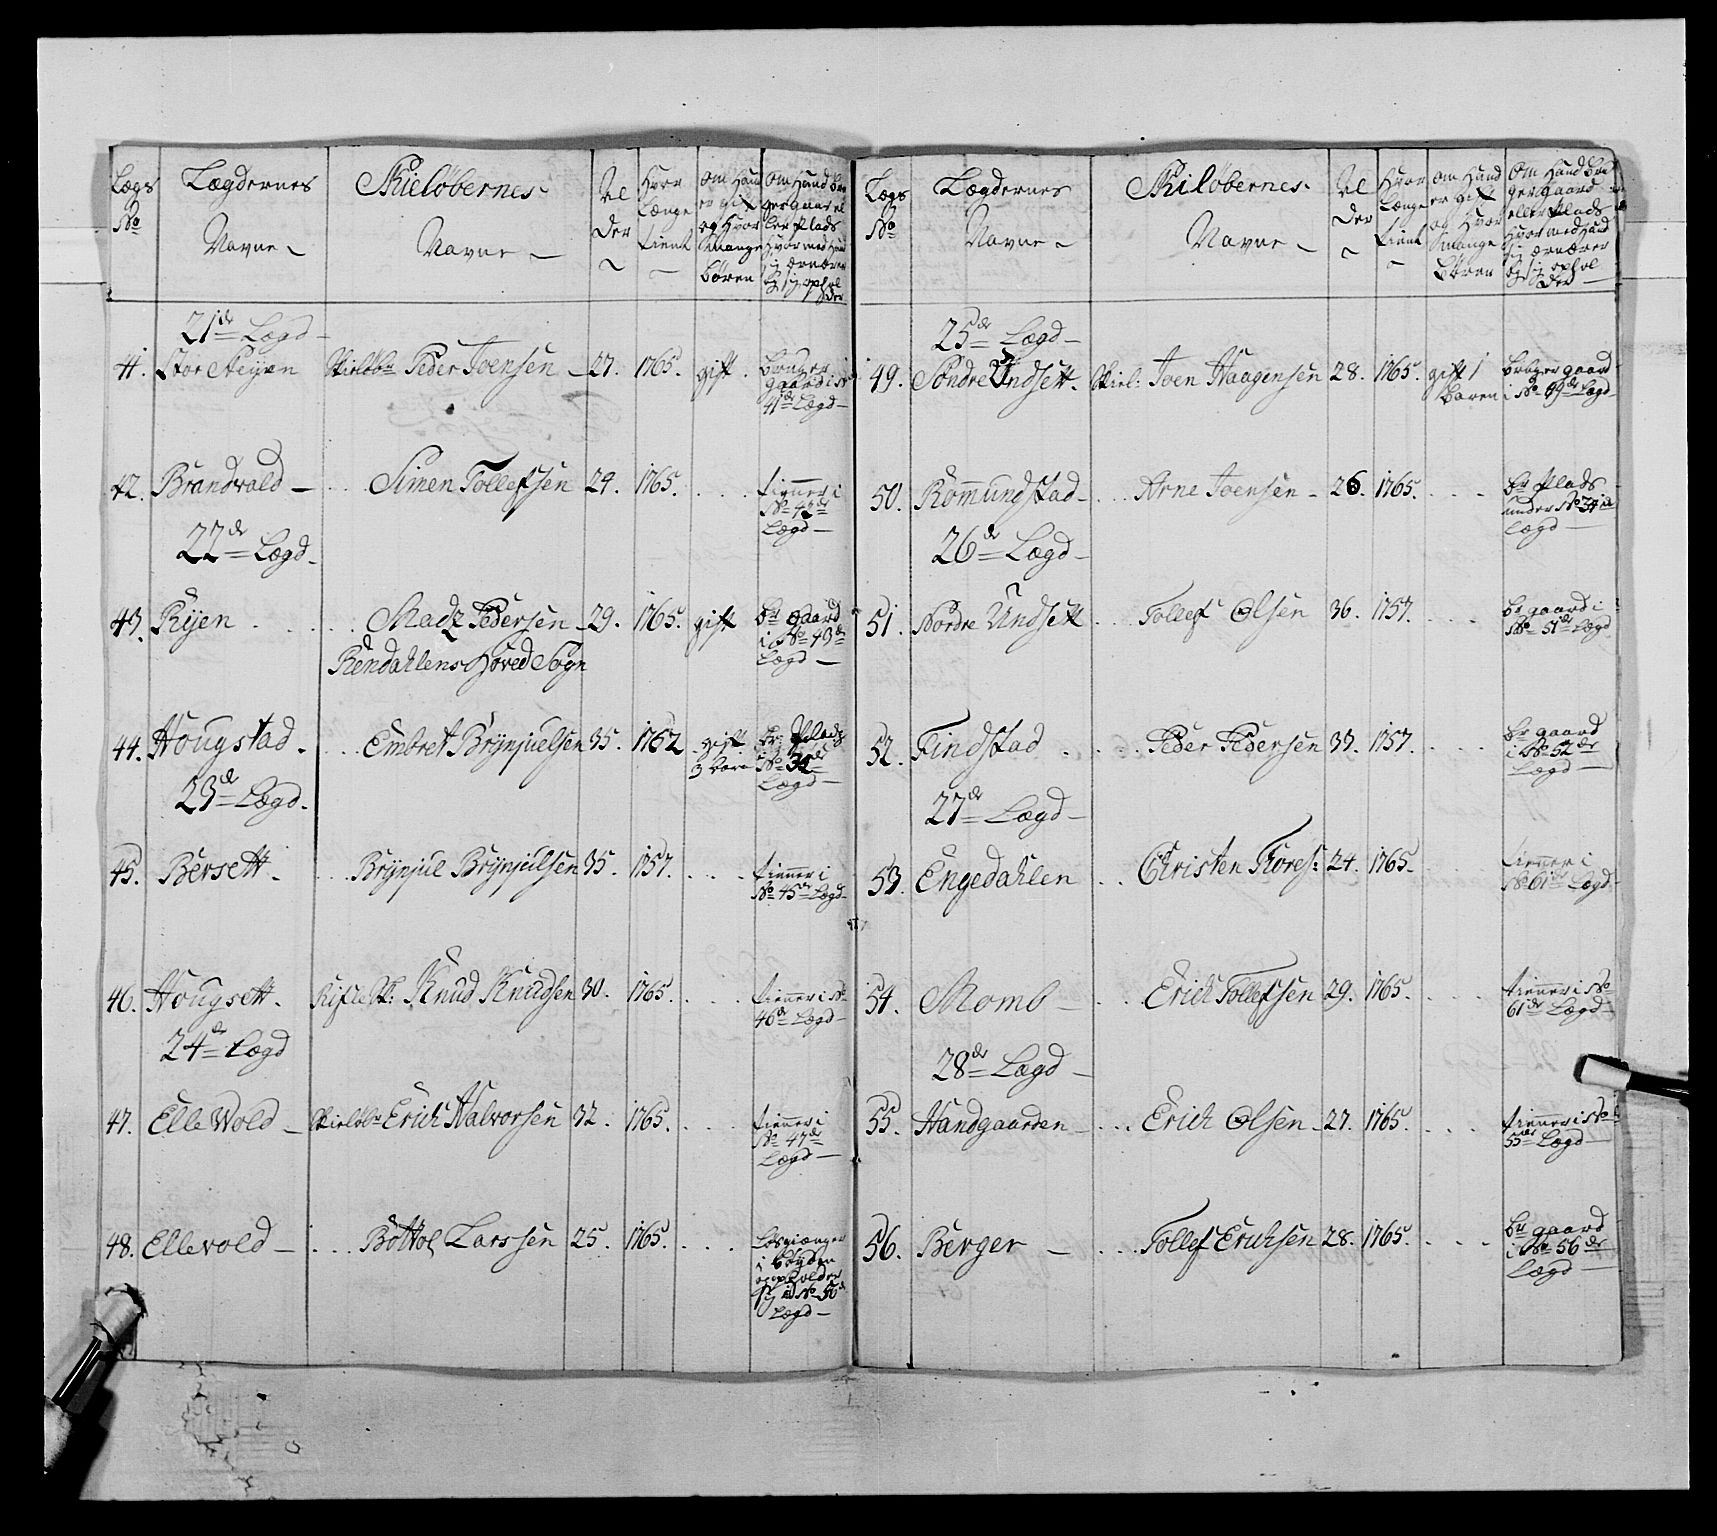 Lægs No
Lægdernes Navne
Skieløbernes Navne
Alder
Hvor Længe tient
om Hand er gift og Hvor Mange Børen
Om Hand bruger gaard eller Plads Hvor med Hand sig ærnærer og sig opholder
21de Lægd
41. Stor Skiren Skieløbr Peder Joensen 27. 1765. gift. bruger gaard i No 41de Lægd
42. Brandvold Simen Tollefsen 24. 1765. tienner i No 42de Lægd
22de Lægd
43. Rijen Madz Pedersen 29. 1765. gift br Gaard i No 43de Lægd
Rendahlens Hoved Sogn
44. Hougstad Embret Brÿnjuelsen 35. 1762 gift 3 børn br Plads No 32de Lægd
23de Lægd
45. Bersett Brÿnjul Brÿnjulsen 35. 1757. tienner i No 45de Lægd
46. Hougsett Rifle Sk: Knud Knudsen 30. 1765. tienner i No 46de Lægd
24de Lægd
47. Elle Wold Skieløbr Erich Halvorsen 32. 1765. tienner i No 47de Lægd
48. Ellevold Bottol Larssen 25. 1765. Løsgiænger i bøÿden opholder sig i No 50de Lægd
Lægs No
Lægdernes Navne
Skiløbernes Navne
Alder
Hvor Længe tient
om Hand er gift og Hvor Mange Børen
Om Hand bruger gaard eller Plads Hvor med Hand sig ærnærer og sig opholder
25de Lægd
49. Søndre Undsett Skiel: Joen Haagensen 28. 1765. gift 1 baren bruger gaard i No 49de Lægd
50. Rommundstad Arne Joensen 26. 1765. br Plads under No 34de Lægd
26de Lægd
51. Nordre Undsett Tollef Olsen 36. 1757. br gaard i No 51de Lægd
52. Findstad Peder Pedersen 33. 1757. br gaard i No 52de Lægd
27de Lægd
53. Engedahlen Christen Tores: 24. 1765. tienner i No 61de Lægd
54. Momb Erich Tollefsen 29. 1765. tienner i No 61de Lægd
28de Lægd
55. Handgaarden Erich Olsen 27. 1765. tienner i No 55de Lægd
56. Berger Tollef Erichsen 28. 1765. br gaard i No 56de Lægd